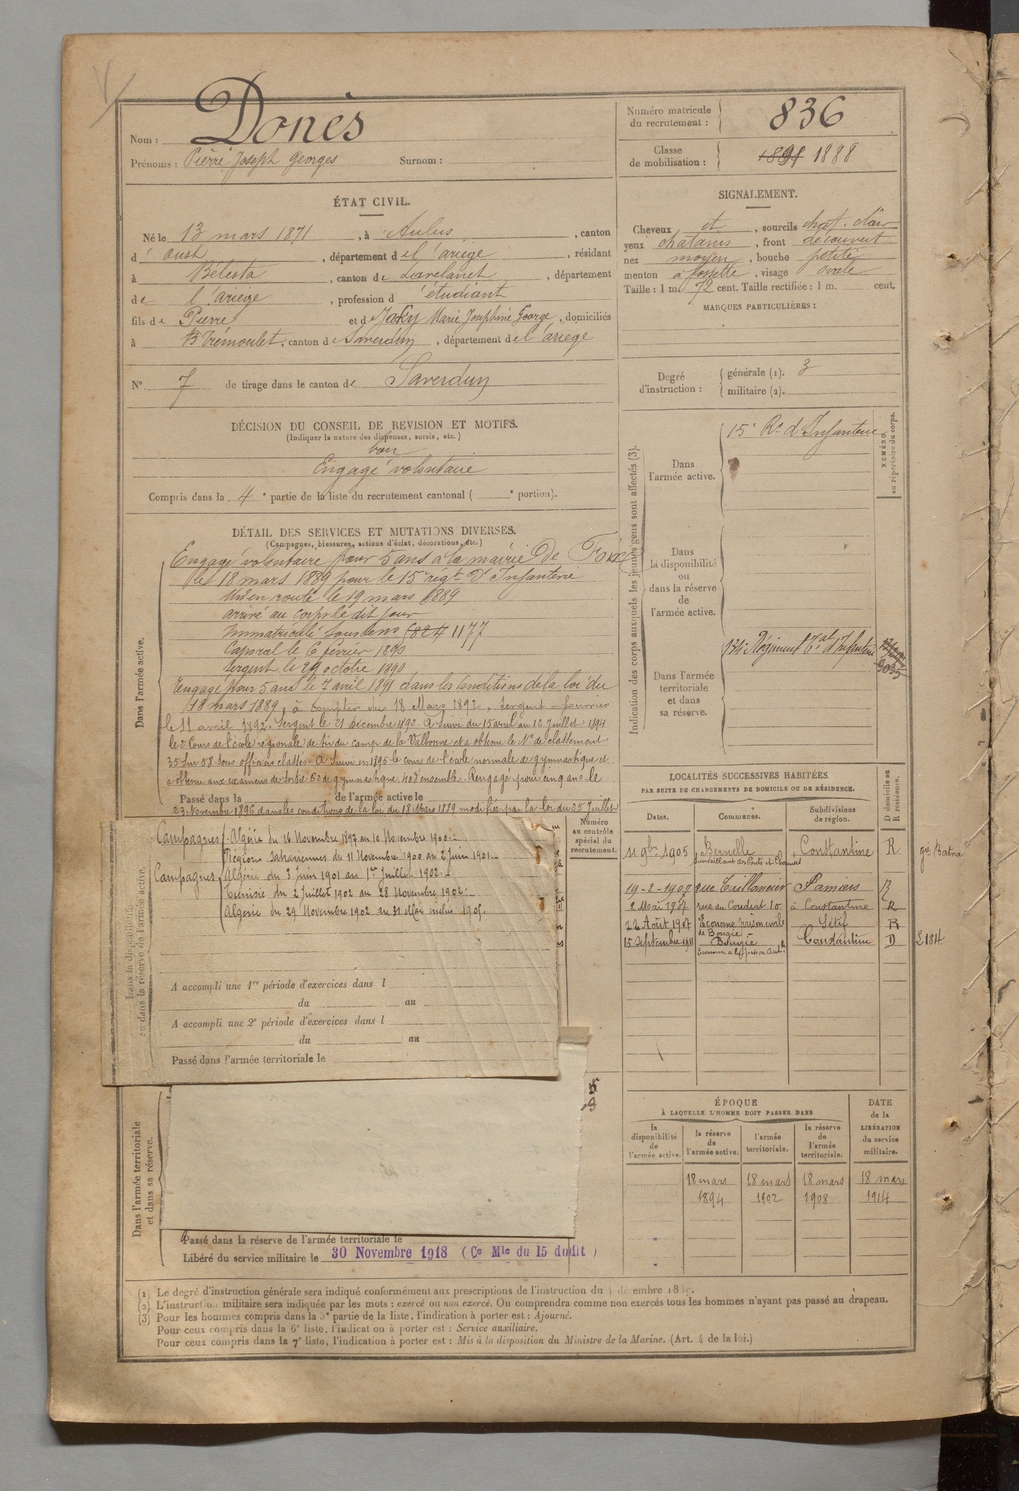 Nom : Donès
Prénoms : Pierre Joseph Georges Surnom :
Numéro matricule du recrutement : 836
Classe de mobilisation : 1891 1888
ÉTAT CIVIL.
Né le 13 mars 1871, à Aulus, canton
d'Oust, département de l'ariège, résidant
à Bélesta, canton de Lavelanet, département
de l'ariège, profession d'étudiant
fils de Pierre et d Jaky Marie Joséphine George, domiciliés
à B Trémoulet, canton de Saverdun, département de l'ariège
N° 7 de tirage dans le canton de Saverdun
SIGNALEMENT.
Cheveux et, sourcils chat. clair
yeux chatains, front découvert
nez moyen, bouche petite
menton à fossette, visage ovale
Taille : 1 m. 72 cent. Taille rectifiée : 1 m. cent.
MARQUES PARTICULIÈRES :
Degré d'instruction : générale (1). 3
militaire (2).
DÉCISION DU CONSEIL DE REVISION ET MOTIFS.
(Indiquer la nature des dispenses, sursis, etc.)
bon
Engagé volontaire
Compris dans la 4e partie de la liste du recrutement cantonal ( e portion).
DÉTAIL DES SERVICES ET MUTATIONS DIVERSES.
(Campagnes, blessures, actions d'éclat, décorations, etc.)
Dans l'armée active.
Engagé volontaire pour 5 ans à la mairie de Foix
le 18 mars 1889 pour le 15e régt d'Infanterie
Mis en route le 19 mars 1889
arrivé au corps le dit jour
Immatriculé sous le no 5824 1177
Caporal le 6 février 1890
Sergent le 29 octobre 1890
Rengagé pour 5 ans le 7 avril 1891 dans les conditions de la loi du
18 mars 1889, à compter du 18 Mars 1892. Sergent-fourrier
le 11 avril 1892. Sergent le 21 décembre 1892. A suivi du 15 avril au 12 Juillet 1894
le 2e Cours de l'école régionale de tir du camp de la Valbonne et a obtenu le No de classement
35 sur 58 Sous officiers classés. A suivi en 1895 le cours de l'école normale de gymnastique et
a obtenu aux examens de sortie de gymnastique 40e d'ensemble. Rengagé pour cinq ans le
Passé dans la de l'armée active le
23 Novembre 1896 dans les conditions de la loi du 18 Mars 1889 modifiée par la loi du 25 Juillet
Indication des corps auxquels les jeunes gens sont affectés (3).
Dans l'armée active.
15e Rt d'Infanterie
NUMÉRO au répertoire du corps.
Dans la disponibilité ou dans la réserve de l'armée active.
Dans l'armée territoriale et dans sa réserve.
134e Régiment Tal d'Infanterie
Numéro au contrôle spécial du recrutement.
Dans la disponibilité ou dans la réserve de l'armée active.
Campagnes Algérie du 16 Novembre 1897 au 10 Novembre 1900.
Régions Sahariennes du 11 Novembre 1900 au 2 juin 1901.
Campagnes Algérie du 3 juin 1901 au 1er Juillet 1902.
Tunisie du 2 Juillet 1902 au 28 Novembre 1902.
Algérie du 29 Novembre 1902 au 31 Mai inclus 1905.
A accompli une 1re période d'exercices dans l
du au
A accompli une 2e période d'exercices dans l
du au
Passé dans l'armée territoriale le
LOCALITÉS SUCCESSIVES HABITÉES.
PAR SUITE DE CHANGEMENTS DE DOMICILE OU DE RÉSIDENCE.
Dates. Communes. Subdivisions de région. D domicile ou R résidence.
11 9bre 1905 Bernelle, Constantine R
Surveillant des Ponts et Chaussées
19-2-1907 Pamiers R
2 Mai 1907 rue du Coudiat 10 à Constantine R
22 Août 1907 Econome prison civile de Bougie Sétif R
15 Septembre 1911 Bougie Constantine D
Dans l'armée territoriale et dans sa réserve.
ÉPOQUE
À LAQUELLE L'HOMME DOIT PASSER DANS
la disponibilité de l'armée active.
la réserve de l'armée active.
l'armée territoriale.
la réserve de l'armée territoriale.
DATE de la LIBÉRATION du service militaire.
18 mars 18 mars 18 mars 18 mars
1894 1902 1908 1914
Passé dans la réserve de l'armée territoriale le
Libéré du service militaire le 30 Novembre 1918 (Ce Mle du 15 dudit)
(1) Le degré d'instruction générale sera indiqué conformément aux prescriptions de l'instruction du
(2) L'instruction militaire sera indiquée par les mots : exercé ou non exercé. On comprendra comme non exercés tous les hommes n'ayant pas passé au drapeau.
(3) Pour les hommes compris dans la 5e partie de la liste, l'indication à porter est : Ajourné.
Pour ceux compris dans la 6e liste, l'indication à porter est : Service auxiliaire.
Pour ceux compris dans la 7e liste, l'indication à porter est : Mis à la disposition du Ministre de la Marine. (Art. 4 de la loi.)